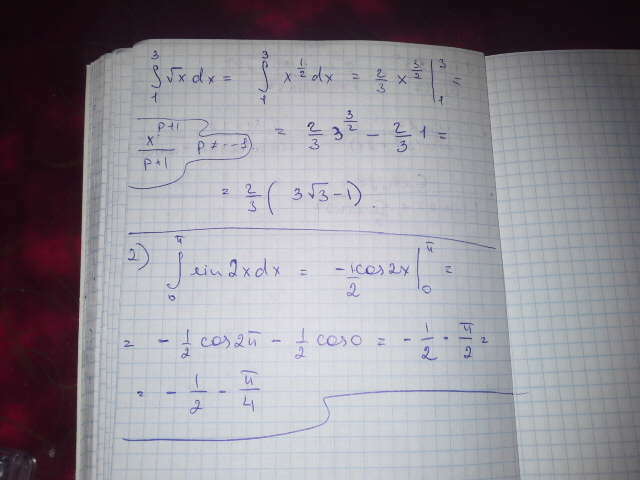 ∫₁³ √x dx = ∫₁³ x^(1/2) dx = 2/3 x^(3/2) |₁³ =
x^(p+1)/(p+1) p ≠ -1 = 2/3 3^(3/2) - 2/3 1 =
= 2/3 ( 3√3 - 1) .
2) ∫₀^π sin 2x dx = - 1/2 cos 2x |₀^π =
= - 1/2 cos 2π - 1/2 cos 0 = - 1/2 - π/2 =
= - 1/2 - π/4